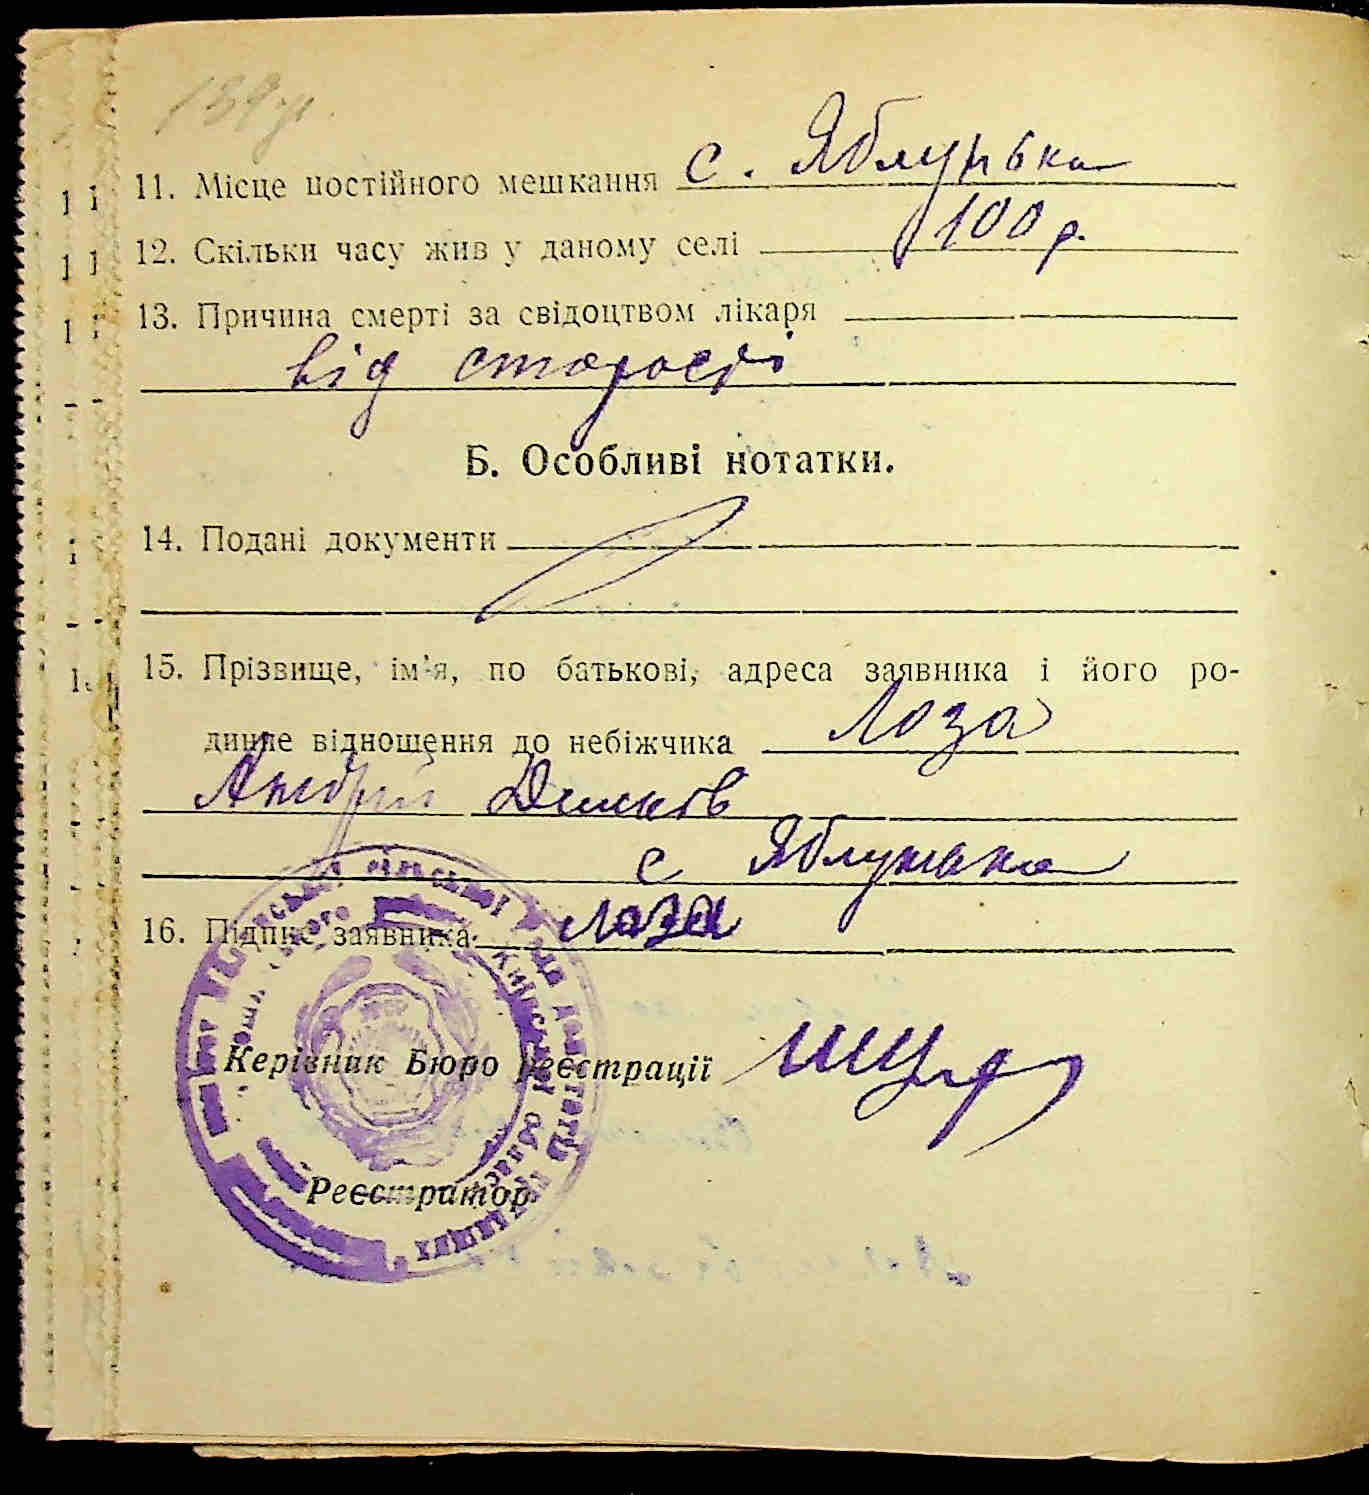 139 зв.
11. Місце постійного мешкання с. Яблунька
12. Скільки часу жив у даному селі 100 р.
13. Причина смерті за свідоцтвом лікаря
від старості
Б. Особливі нотатки.
14. Подані документи
15. Прізвище, ім'я, по батькові, адреса заявника і його ро-
динне відношення до небіжчика Лоза
Андрій
с Яблунька
16. Підпис заявника Лоза
Керівник Бюро реєстрації
Реєстратор
сільської ради депутатів трудящих
Київської област